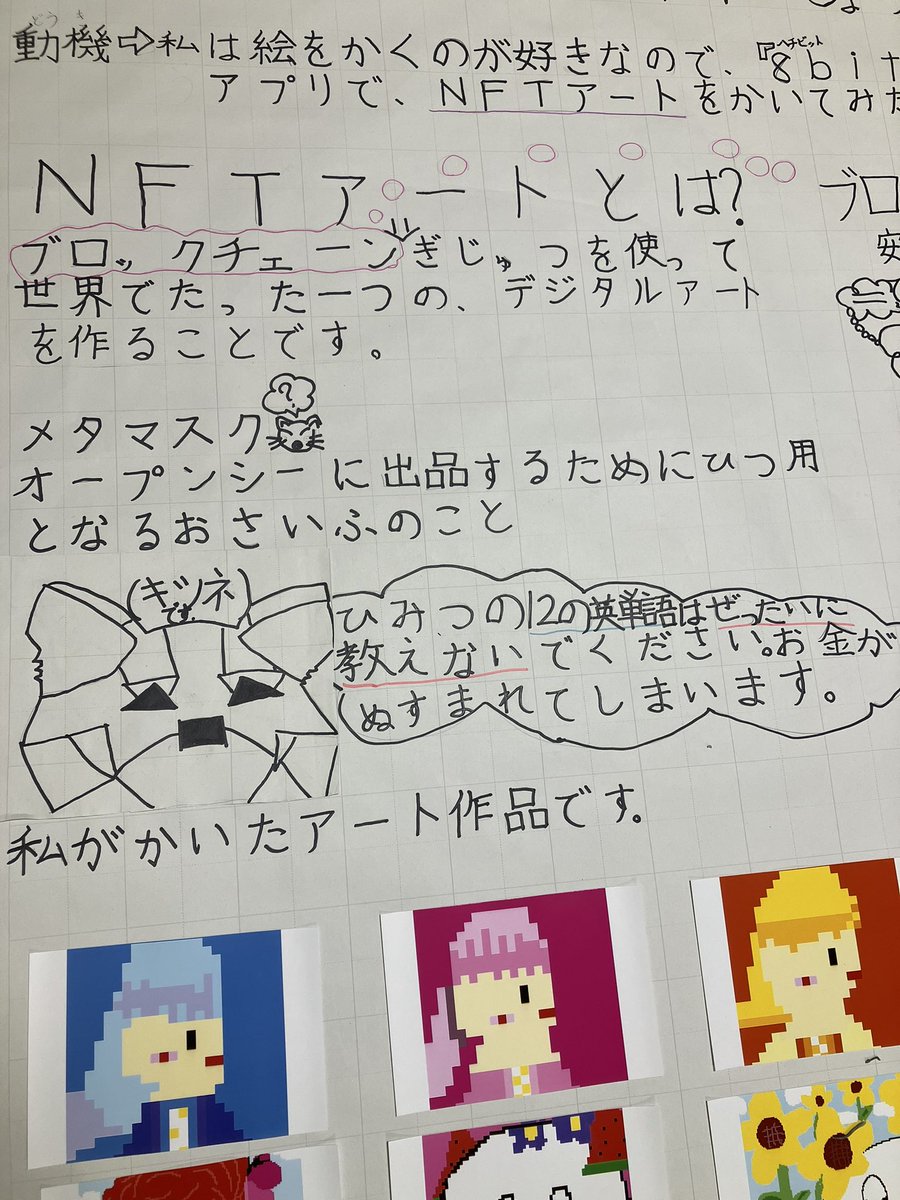 どうき
動機⇨私は絵をかくのが好きなので、『8bit
ハチビット
アプリで、NFTアートをかいてみた
NFTアートとは?
ブロックチェーンぎじゅつを使って
世界でたった一つの、デジタルアート
を作ることです。
ブロ
安
メタマスク
?
オープンシーに出品するためにひつ用
となるおさいふのこと
(キツネ
です。
ひみつの12の英単語はぜったいに
教えないでください。お金が
ぬすまれてしまいます。
私がかいたアート作品です。